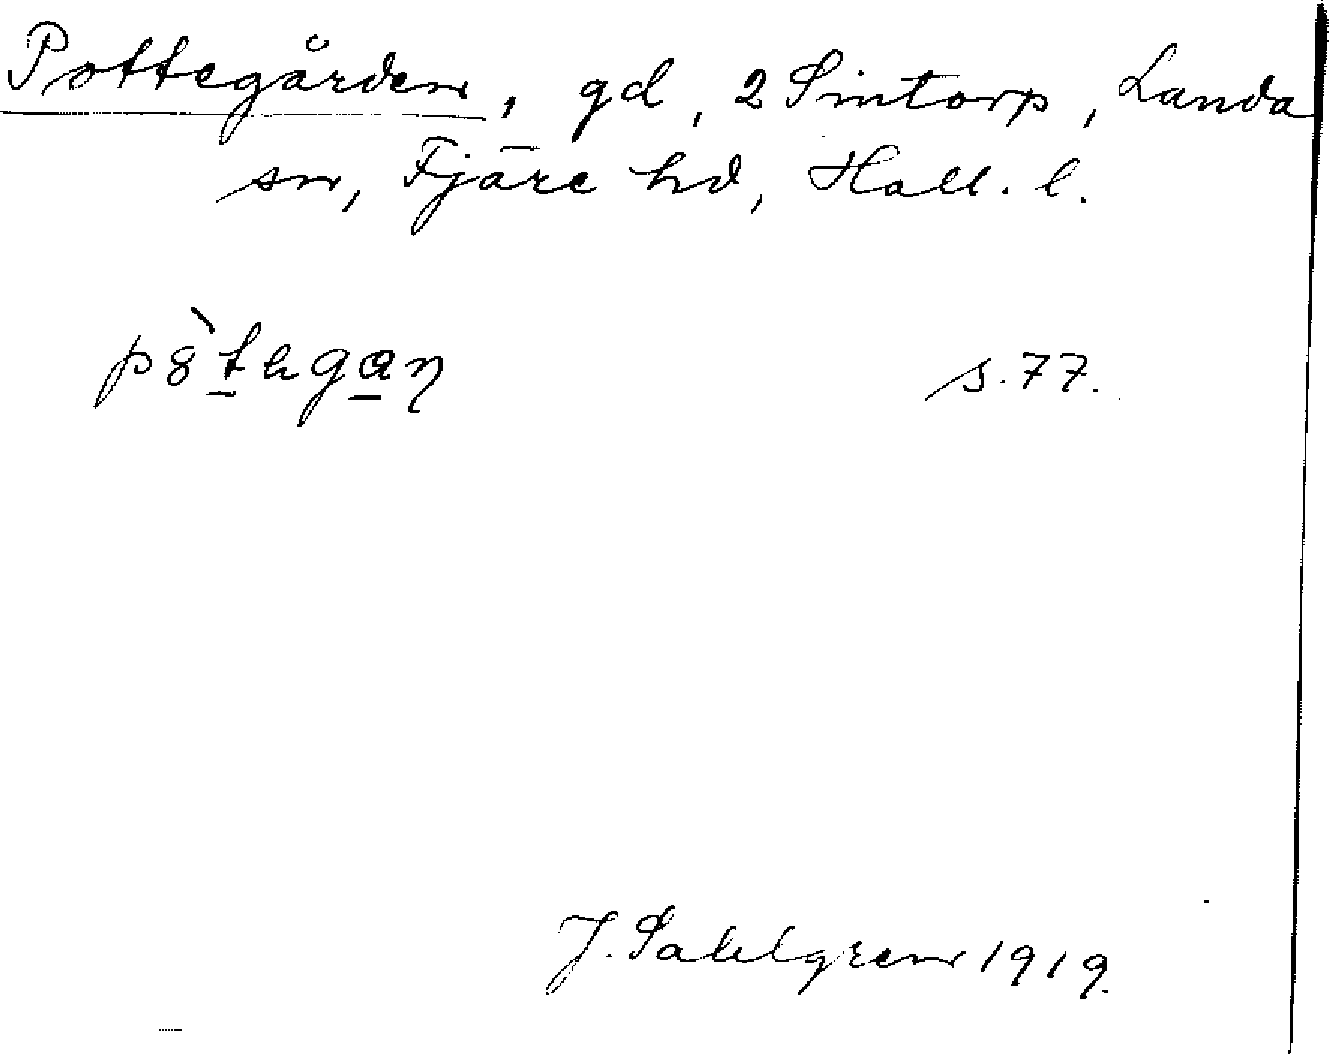 Pottegården, gd, 2 Sintorp, Landa
sn, Fjäre hd, Hall. l.
s. 77.
J. Sahlgren 1919.